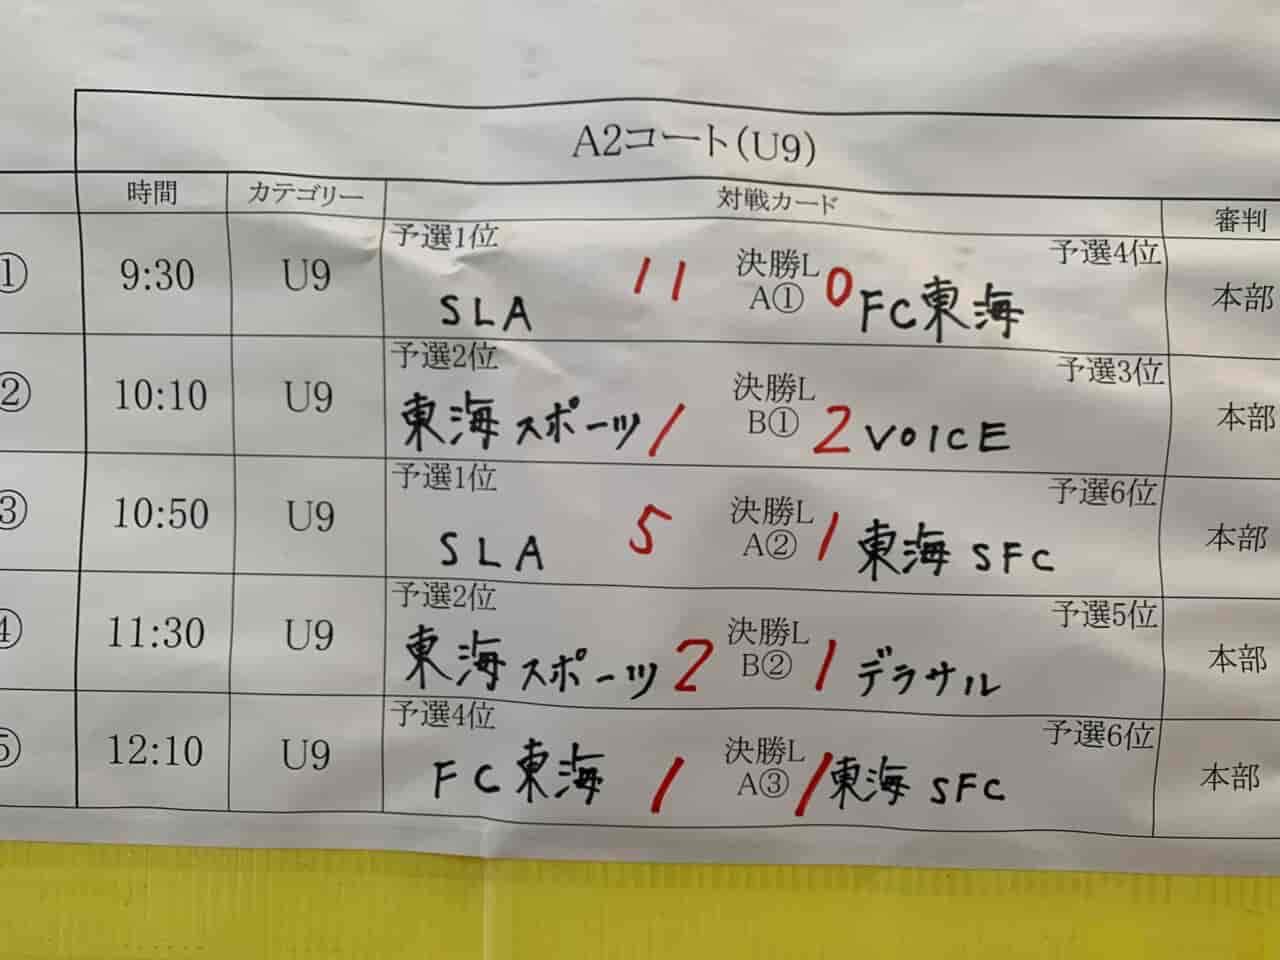 A2コート(U9)
時間 カテゴリー 対戦カード 審判
① 9:30 U9 予選1位 SLA 11 決勝L A① 0 予選4位 FC東海 本部
② 10:10 U9 予選2位 東海スポーツ 1 決勝L B① 2 予選3位 VOICE 本部
③ 10:50 U9 予選1位 SLA 5 決勝L A② 1 予選6位 東海SFC 本部
④ 11:30 U9 予選2位 東海スポーツ 2 決勝L B② 1 予選5位 デラサル 本部
⑤ 12:10 U9 予選4位 FC東海 1 決勝L A③ 1 予選6位 東海SFC 本部